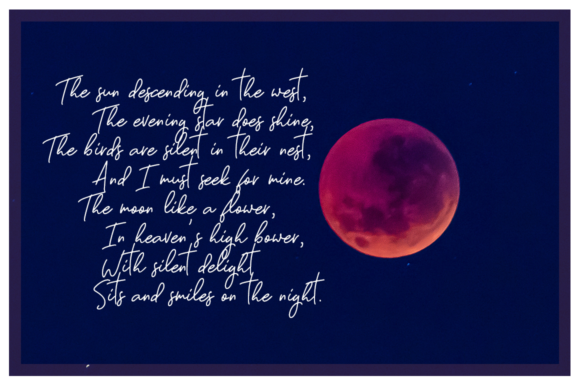 The sun descending in the west,
The evening star does shine,
The birds are silent in their nest,
And I must seek for mine.
The moon like, a flower,
In heaven's high bower,
With silent delight
Sits and smiles on the night.